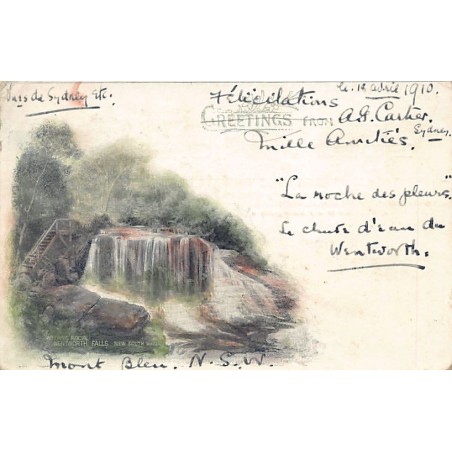 Vues de Sydney etc.
le 12 avril 1910.
Félicitations
GREETINGS FROM A.G. Cartier.
Sydney.
Mille Amitiés.
"La roche des pleurs"
Le chute d'eau du
Wentworth.
WEEPING ROCK
WENTWORTH FALLS NEW SOUTH WALES
Mont Bleu. N.S.W.